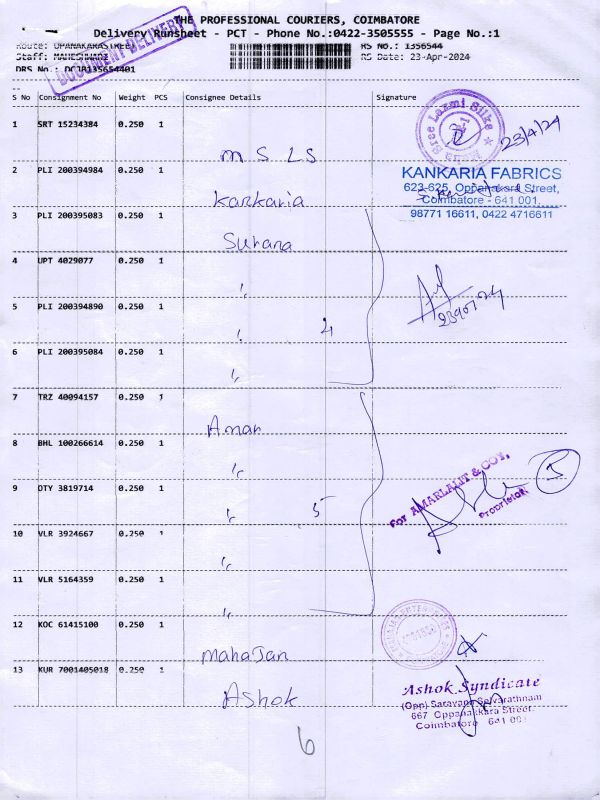 THE PROFESSIONAL COURIERS, COIMBATORE
Delivery Runsheet - PCT - Phone No.:0422-3505555 - Page No.:1
Route: OPANAKARASTREET RS No.: 1356544
Staff: MAHESHWARI RS Date: 23-Apr-2024
DRS No.: DCJB135654401
DOCUMENT DELIVERY
S No Consignment No Weight PCS Consignee Details Signature
1 SRT 15234384 0.250 1 M S LS Sree Laxmi Silks 23/4/24
2 PLI 200394984 0.250 1 Kankaria
KANKARIA FABRICS
623-625, Oppanakara Street,
Coimbatore - 641 001.
98771 16611, 0422 4716611
3 PLI 200395083 0.250 1 Surana
4 UPT 4029077 0.250 1 "
5 PLI 200394890 0.250 1 " 4
6 PLI 200395084 0.250 1 "
7 TRZ 40094157 0.250 1 Amar
8 BHL 100266614 0.250 1 "
For AMARLALIT & COY.
Proprietor
5
9 OTY 3819714 0.250 1 " 5
10 VLR 3924667 0.250 1 "
11 VLR 5164359 0.250 1 "
12 KOC 61415100 0.250 1 Mahajan
13 KUR 7001405018 0.250 1 Ashok
Ashok Syndicate
(Opp) Saravana Selvarathnam
667 Oppanakkara Street.
Coimbatore 641 001
6